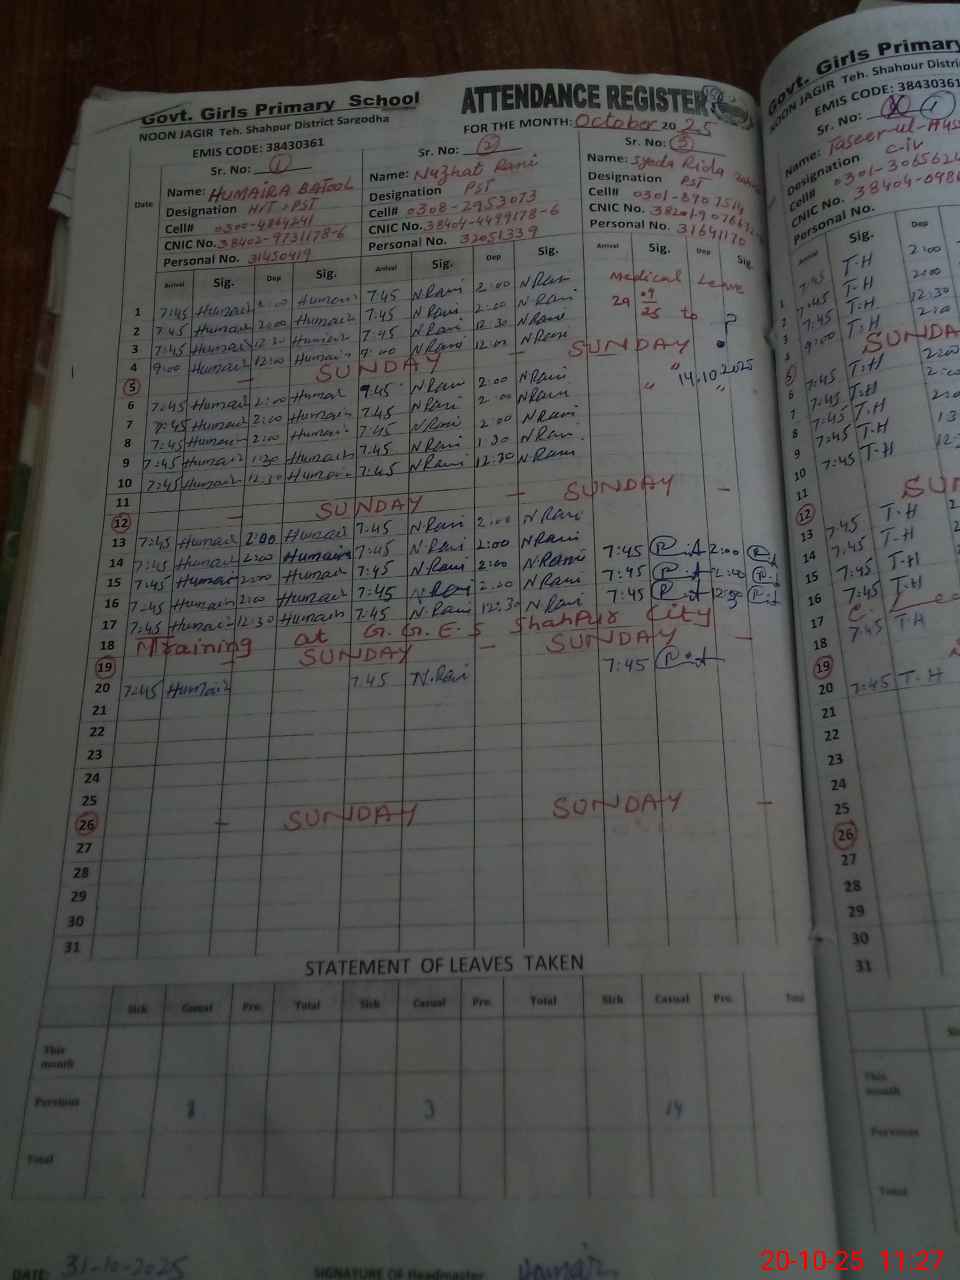 Govt. Girls Primary School
ATTENDANCE REGISTER
NOON JAGIR Teh. Shahpur District Sargodha
FOR THE MONTH: October 2025
EMIS CODE: 38430361
Sr. No: 1
Sr. No: 2
Sr. No: 3
Date
Name: HUMAIRA BATOOL
Name: Nuzhat Rani
Name: Syeda Rida
Designation H/T, PST
Designation PST
Designation PST
Cell#
Cell# 0308-2953073
Cell#
CNIC No. 38402-9731178-6
CNIC No. 38404-4499178-6
CNIC No.
Personal No. 31450419
Personal No. 32051339
Personal No. 31641170
Arrival Sig. Dep Sig. Arrival Sig. Dep Sig. Arrival Sig. Dep Sig.
Medical Leave
1 7:45 Humair 2:00 Humair 7:45 N.Rani 2:00 N.Rani 29.9.25 to
2 7:45 Humair 2:00 Humair 7:45 N.Rani 2:00 N.Rani ?
3 7:45 Humair 12:30 Humair 7:45 N.Rani 12:30 N.Rani
4 9:00 Humair 12:00 Humair 9:00 N.Rani 12:00 N.Rani
5 – SUNDAY – SUNDAY
14.10.2025
6 7:45 Humair 2:00 Humair 7:45 N.Rani 2:00 N.Rani " " "
7 7:45 Humair 2:00 Humair 7:45 N.Rani 2:00 N.Rani
8 7:45 Humair 2:00 Humair 7:45 N.Rani 2:00 N.Rani
9 7:45 Humair 1:30 Humair 7:45 N.Rani 1:30 N.Rani
10 7:45 Humair 12:30 Humair 7:45 N.Rani 12:30 N.Rani
11
12 – SUNDAY – SUNDAY –
13 7:45 Humair 2:00 Humair 7:45 N.Rani 2:00 N.Rani
14 7:45 Humair 2:00 Humair 7:45 N.Rani 2:00 N.Rani
15 7:45 Humair 2:00 Humair 7:45 N.Rani 2:00 N.Rani 7:45 2:00
16 7:45 Humair 2:00 Humair 7:45 N.Rani 2:00 N.Rani 7:45
17 7:45 Humair 12:30 Humair 7:45 N.Rani 12:30 N.Rani 7:45 12:30
18 Training at G.G.E.S Shahpur City
19 – SUNDAY – SUNDAY –
20 7:45 Humair 7:45 N.Rani 7:45
21
22
23
24
25
26 – SUNDAY SUNDAY –
27
28
29
30
31
STATEMENT OF LEAVES TAKEN
Sick Casual Pre. Total Sick Casual Pre. Total Sick Casual Pre. Total
This month
Previous 3 14
Total
DATE: 31-10-2025 SIGNATURE OF Headmaster Humair
Govt. Girls Primary
NOON JAGIR Teh. Shahpur Distri
EMIS CODE: 38430361
Sr. No: 1
Name: Taseer-ul-
Designation C-iv
Cell# 0301-306562
CNIC No. 38404-098
Personal No.
Sig.
1 7:45 T-H 2:00
2 7:45 T-H 2:00
3 7:45 T-H 12:30
4 9:00 T-H
5 SUNDA
6 7:45 T-H 2:00
7 7:45 T-H
8 7:45 T-H
9 7:45 T-H
10 7:45 T-H
11
12 SUN
13 7:45 T-H
14 7:45 T-H
15 7:45 T-H
16 7:45 T-H
17
18 7:45 T-H
19
20 7:45 T-H
21
22
23
24
25
26
27
28
29
30
31
This month
Previous
Total
20-10-25 11:27